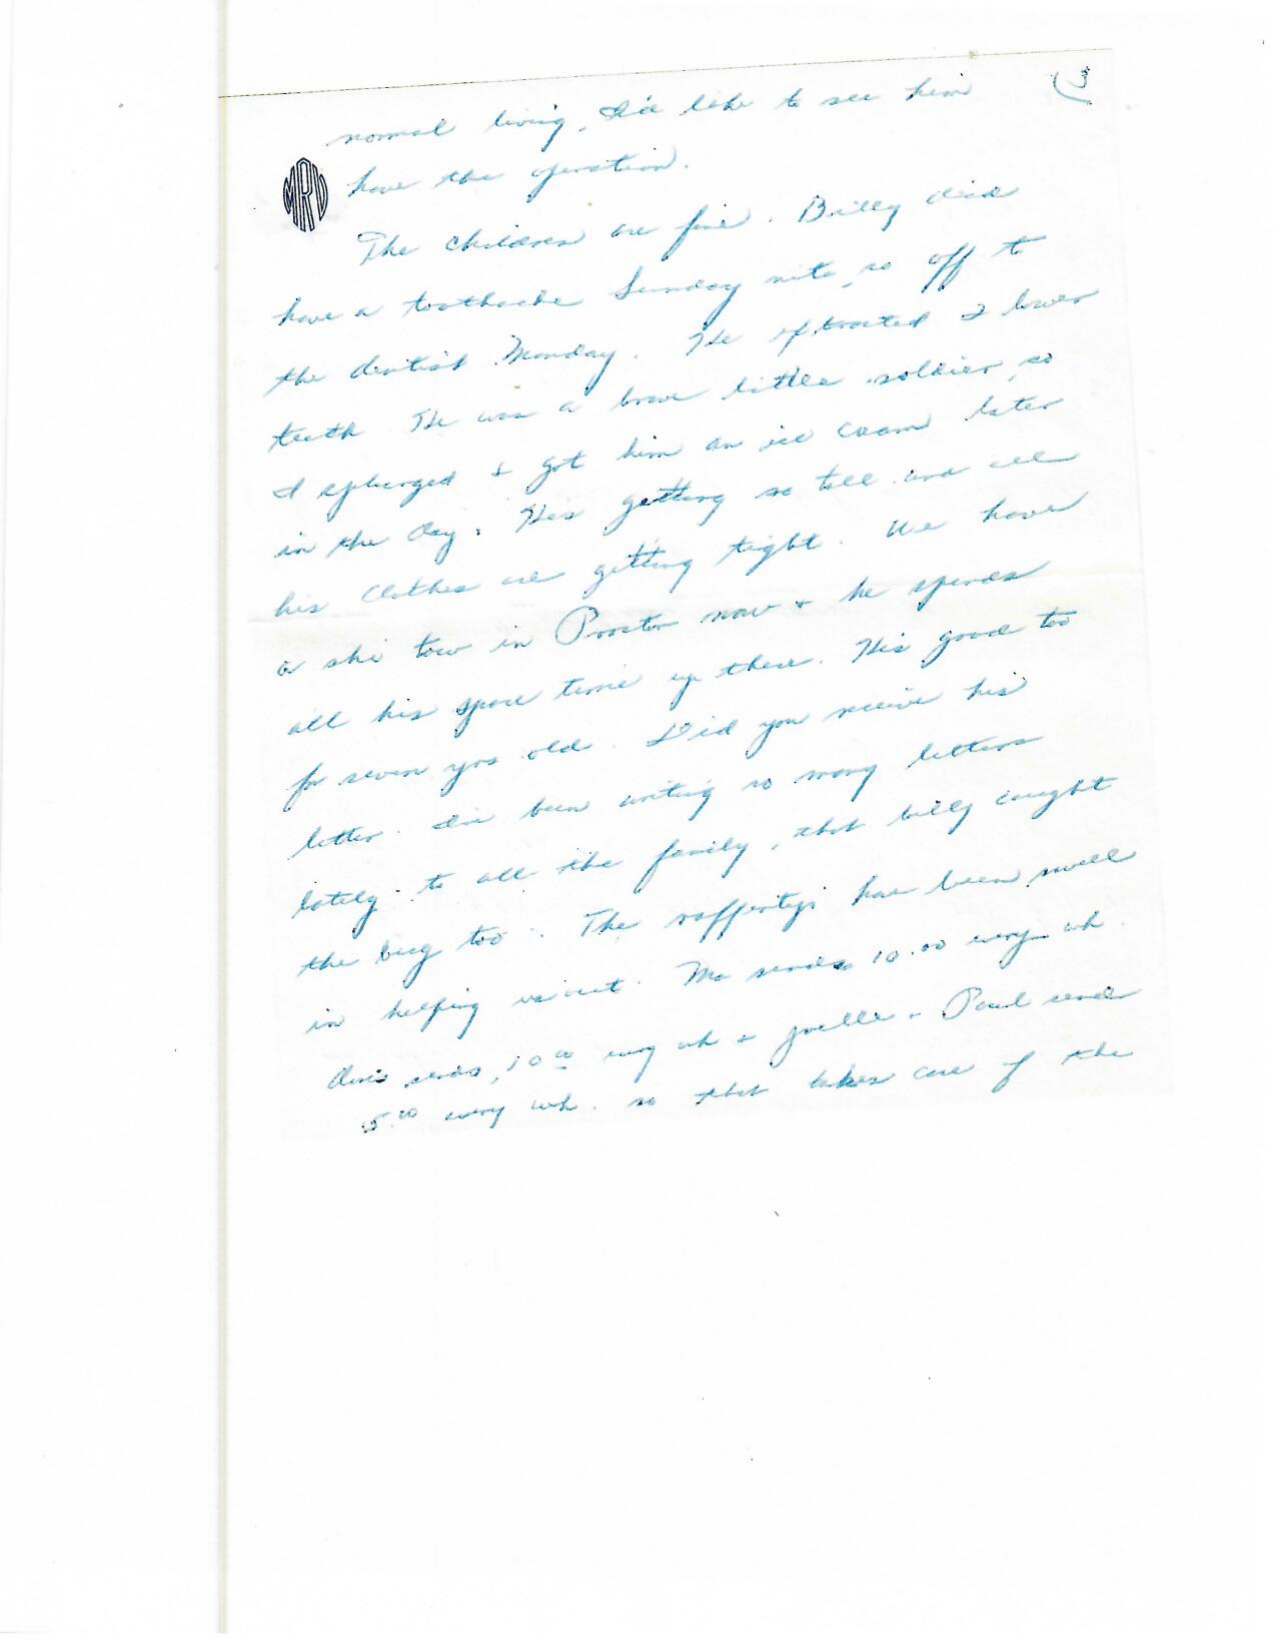 (3
normal living, I'd like to see him
MRV
have the operation.
The children are fine. Billy did
have a toothache Sunday nite, so off to
the dentist Monday. He extracted 2 lower
teeth. He was a brave little soldier, so
I splurged & got him an ice cream later
in the day. He's getting so tall and all
his clothes are getting tight. We have
a ski tow in Proctor now & he spends
all his spare time up there. He's good too
for seven yrs old. Did you receive his
letter. I've been writing so many letters
lately to all the family, that billy caught
the bug too. The raffertys have been swell
in helping us out. Ma sends 10.00 every wk.
sends 10.00 every wk & & Paul send
5.00 every wk. so that takes care of the